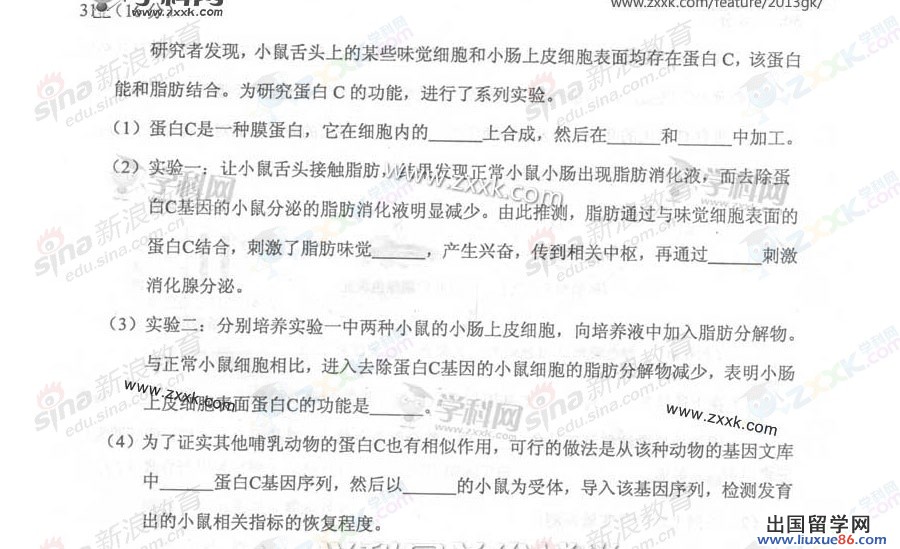 www.zxxk.com/feature/2013gk/
研究者发现，小鼠舌头上的某些味觉细胞和小肠上皮细胞表面均存在蛋白 C，该蛋白
能和脂肪结合。为研究蛋白 C 的功能，进行了系列实验。
（1）蛋白C是一种膜蛋白，它在细胞内的______上合成，然后在______和______中加工。
（2）实验一：让小鼠舌头接触脂肪，结果发现正常小鼠小肠出现脂肪消化液，而去除蛋
白C基因的小鼠分泌的脂肪消化液明显减少。由此推测，脂肪通过与味觉细胞表面的
蛋白C结合，刺激了脂肪味觉______，产生兴奋，传到相关中枢，再通过______刺激
消化腺分泌。
（3）实验二：分别培养实验一中两种小鼠的小肠上皮细胞，向培养液中加入脂肪分解物。
与正常小鼠细胞相比，进入去除蛋白C基因的小鼠细胞的脂肪分解物减少，表明小肠
上皮细胞表面蛋白C的功能是______。
（4）为了证实其他哺乳动物的蛋白C也有相似作用，可行的做法是从该种动物的基因文库
中______蛋白C基因序列，然后以______的小鼠为受体，导入该基因序列，检测发育
出的小鼠相关指标的恢复程度。
www.zxxk.com
www.zxxk.com
www.zxxk.com
学科网
学科网
sina新浪教育
edu.sina.com.cn
出国留学网
www.liuxue86.com